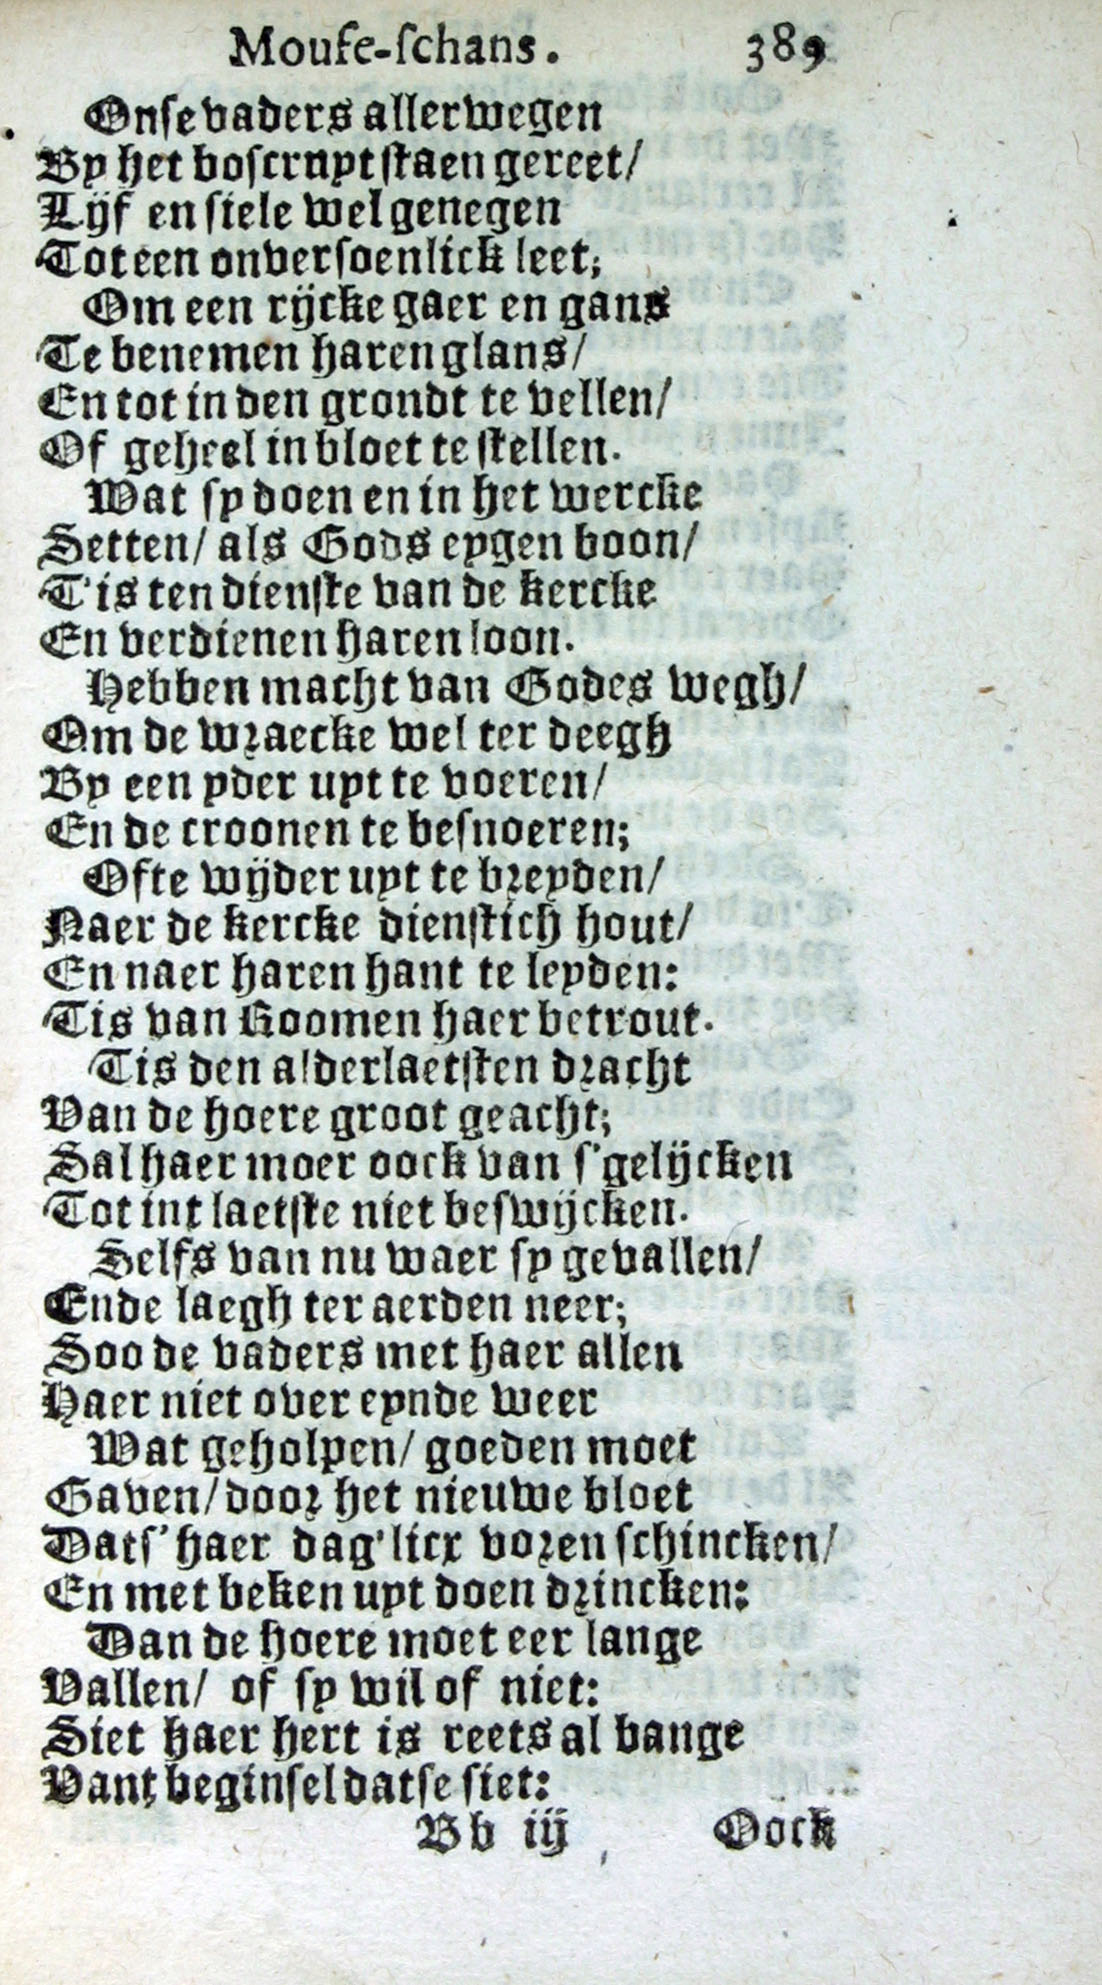 Mouse-schans. 389
Onse vaders allerwegen
By het voscruyt staen gereet/
Lijf en siele wel genegen
Tot een onversoenlick leet;
Om een rijcke gaer en gans
Te benemen haren glans/
En tot in den grondt te vellen/
Of geheel in bloet te stellen.
Wat sy doen en in het wercke
Setten/ als Gods eygen boon/
T'is ten dienste van de kercke
En verdienen haren loon.
Hebben macht van Godes wegh/
Om de wraecke wel ter deegh
By een yder uyt te voeren/
En de croonen te besnoeren;
Ofte wijder uyt te breyden/
Naer de kercke dienstich hout/
En naer haren hant te leyden:
Tis van Roomen haer betrout.
Tis den alderlaetsten dracht
Van de hoere groot geacht;
Sal haer moer oock van s'gelijcken
Tot int laetste niet beswijcken.
Selfs van nu waer sy gevallen/
Ende laegh ter aerden neer;
Soo de vaders met haer allen
Haer niet over eynde weer
Wat geholpen/ goeden moet
Gaven/ door het nieuwe bloet
Dats' haer dag'licx voren schincken/
En met beken uyt doen drincken:
Dan de hoere moet eer lange
Vallen/ of sy wil of niet:
Siet haer hert is reets al bange
Vant beginsel datse siet:
Bb iij Oock